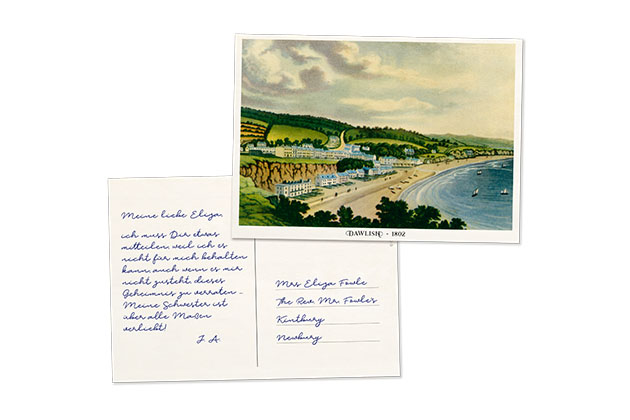 DAWLISH - 1802
Meine liebe Eliza,
ich muss Dir etwas
mitteilen, weil ich es
nicht für mich behalten
kann, auch wenn es mir
nicht zusteht, dieses
Geheimnis zu verraten –
Meine Schwester ist
über alle Maßen
verliebt!
J. A.
Mrs Eliza Fowle
The Rev. Mr. Fowle's
Kintbury
Newbury